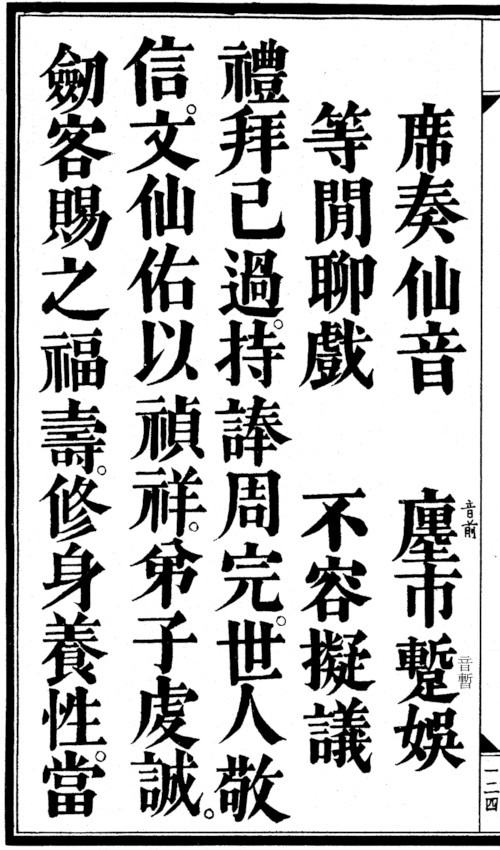 席奏仙音　廛市蹔娛
音前
音暫
等閒聊戲　不容擬議
禮拜已過。持諱周完。世人敬
信。文仙佑以禎祥。弟子虔誠。
劒客賜之福壽。修身養性。當
一二四